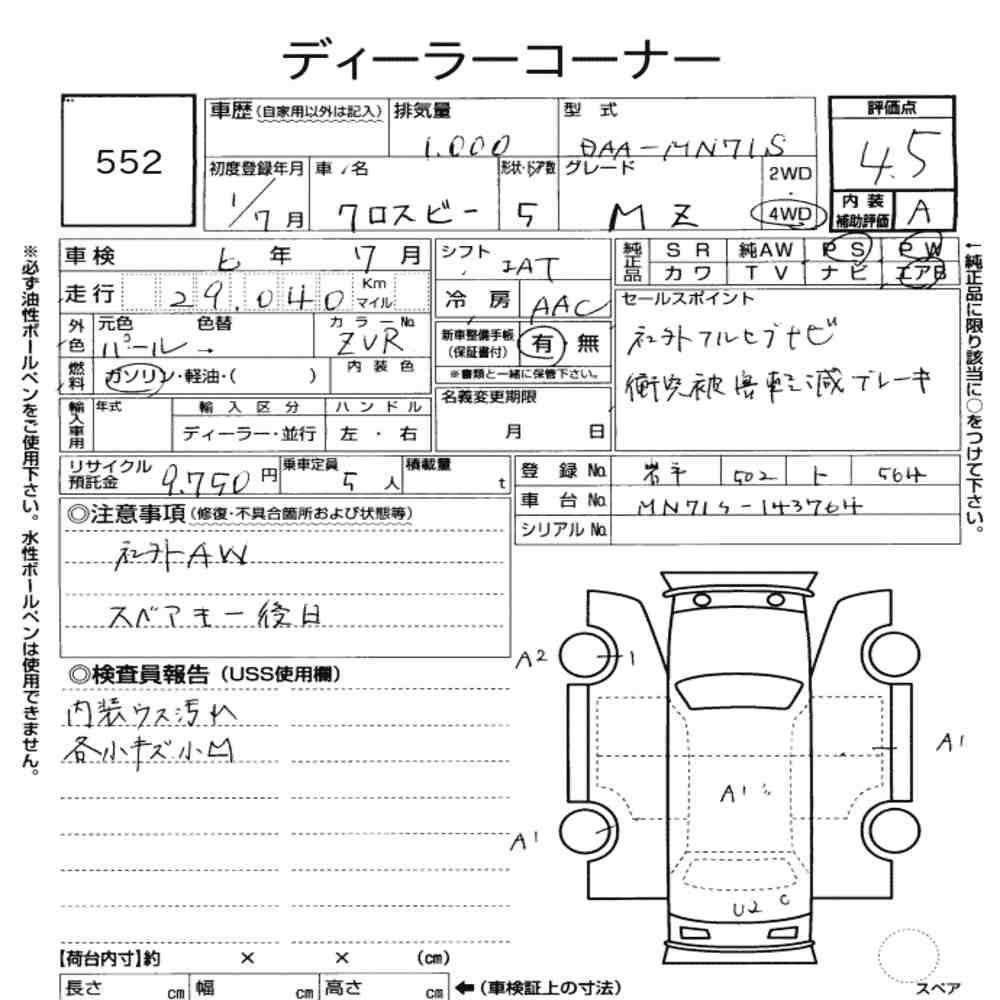 ディーラーコーナー
552
車歴(自家用以外は記入) 排気量 1.000 型式 DAA-MN71S
評価点 4.5
初度登録年月 1/7月 車名 クロスビー 形状・ドア数 5 グレード MZ 2WD・4WD
内装補助評価 A
車検 6年 7月 シフト IAT
純正品 SR 純AW PS PW
カワ TV ナビ エアB
走行 29.040 Km マイル 冷房 AAC
セールスポイント
外色 元色 パール→ 色替 カラーNo. ZVR
新車整備手帳(保証書付) 有・無
※書類と一緒に保管下さい。
社外フルセグナビ
衝突被害軽減ブレーキ
燃料 ガソリン・軽油・( ) 内装色
名義変更期限 月 日
輸入車用 年式 輸入区分 ハンドル
ディーラー・並行 左・右
リサイクル預託金 9.750円 乗車定員 5人 積載量 t
登録No. 岩手 502 ト 564
車台No. MN71S-143764
シリアルNo.
◎注意事項(修復・不具合箇所および状態等)
社外AW
スペアキー後日
◎検査員報告(USS使用欄)
内装ウス汚れ
各小キズ小凹
A2 1
A1
A1
A1
U2 C
【荷台内寸】約 × × (cm)
長さ cm 幅 cm 高さ cm ←(車検証上の寸法)
スペア
※必ず油性ボールペンをご使用下さい。水性ボールペンは使用できません。
←純正品に限り該当に○をつけて下さい。